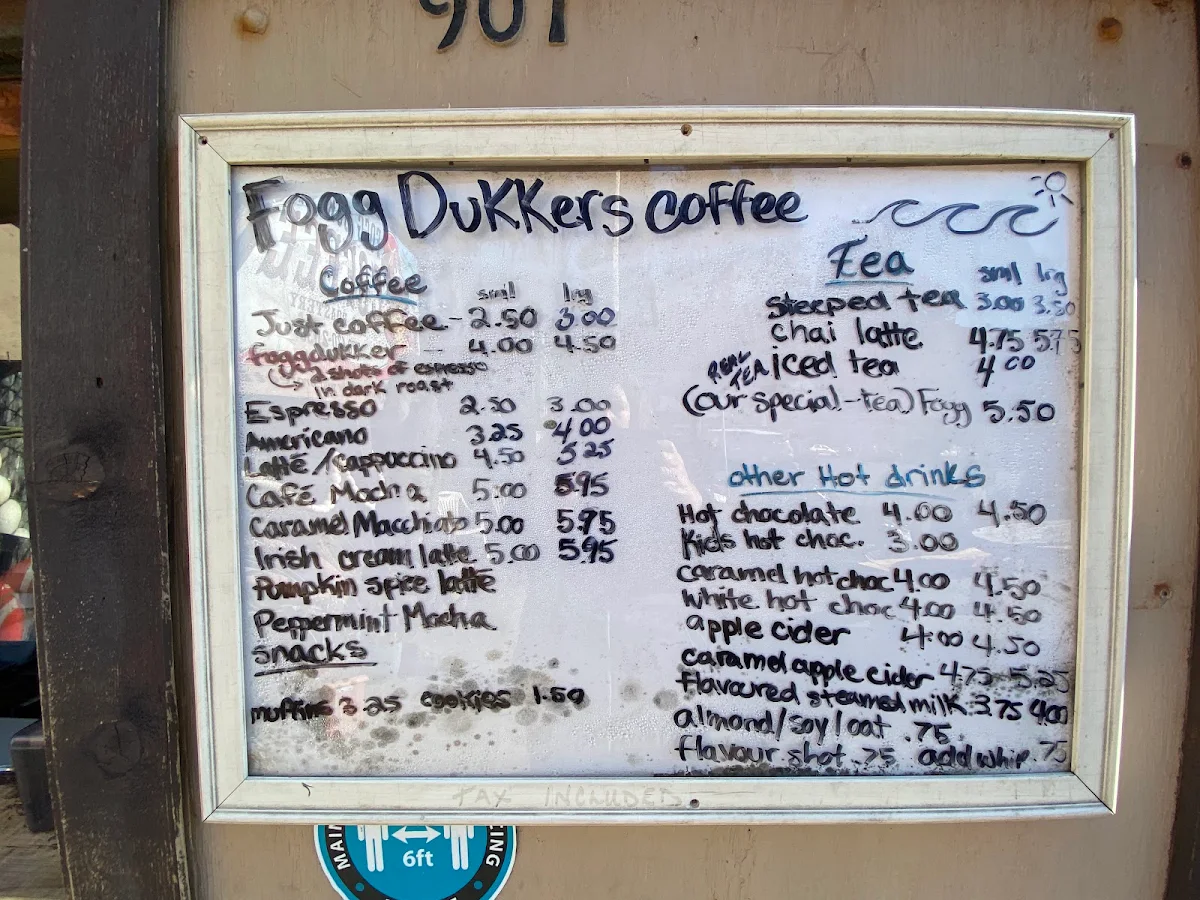 901
Fogg Dukkers coffee
Coffee
sml lrg
Just coffee - 2.50 3.00
foggdukker - 4.00 4.50
2 shots of espresso
in dark roast
Espresso 2.50 3.00
Americano 3.25 4.00
Latté / Cappuccino 4.50 5.25
Café Mocha 5.00 5.95
Caramel Macchiato 5.00 5.95
Irish cream latte 5.00 5.95
Pumpkin spice latte
Peppermint Mocha
snacks
muffins 3.25 cookies 1.50
Tea
sml lrg
steeped tea 3.00 3.50
chai latte 4.75 5.75
REAL TEA iced tea 4.00
(our special-tea) Fogg 5.50
other Hot drinks
Hot chocolate 4.00 4.50
Kids hot choc. 3.00
caramel hot choc 4.00 4.50
white hot choc 4.00 4.50
apple cider 4.00 4.50
caramel apple cider 4.75 5.25
flavoured steamed milk 3.75 4.00
almond/soy/oat .75
flavour shot .75 add whip .75
TAX INCLUDED
6ft